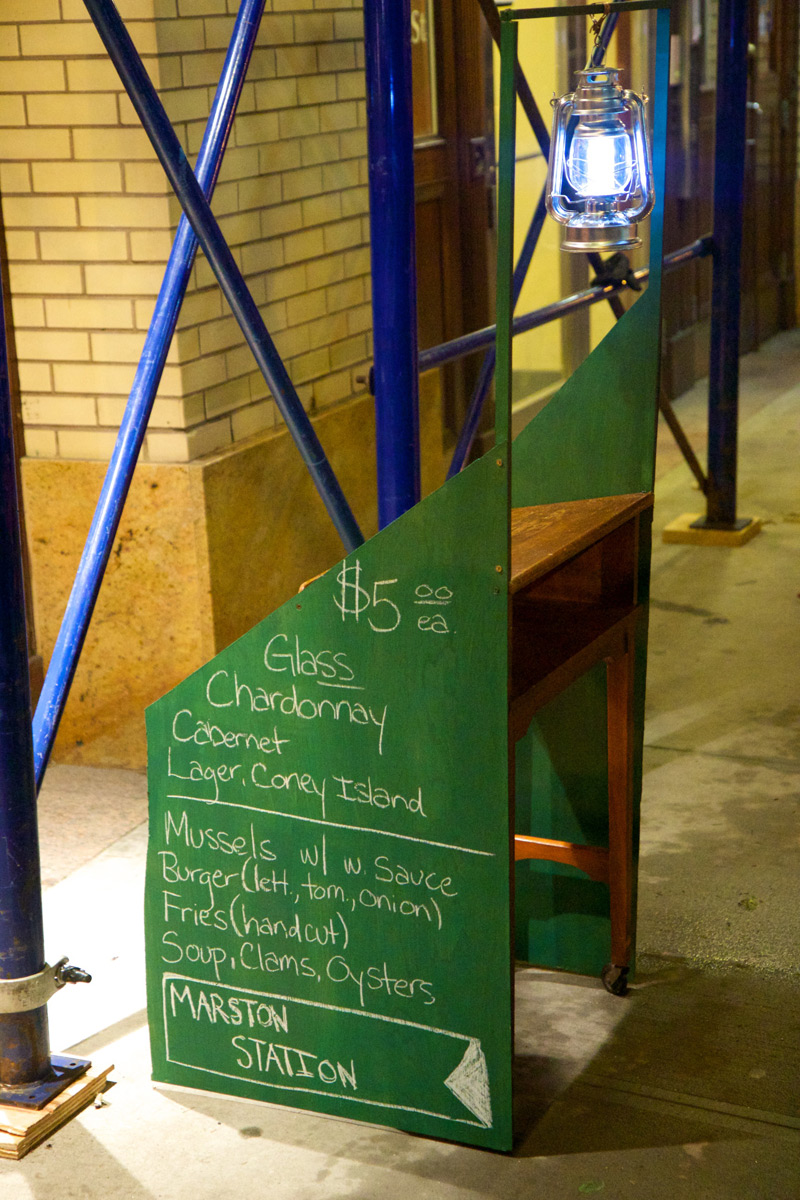 $5 00 ea.
Glass
Chardonnay
Cabernet
Lager, Coney Island
Mussels w/ w. Sauce
Burger (lett., tom., onion)
Fries (handcut)
Soup, Clams, Oysters
MARSTON
STATION